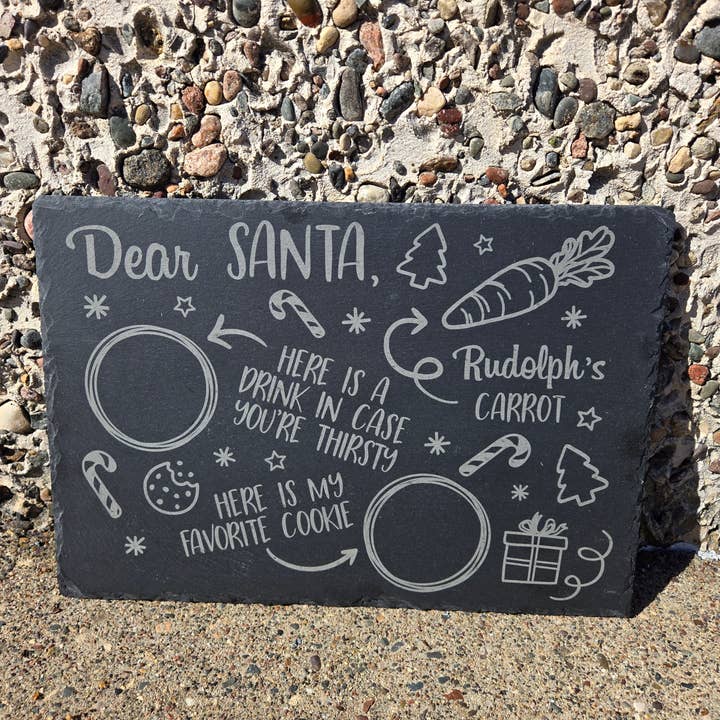 Dear SANTA,
HERE IS A
DRINK IN CASE
YOU'RE THIRSTY
Rudolph's
CARROT
HERE IS MY
FAVORITE COOKIE